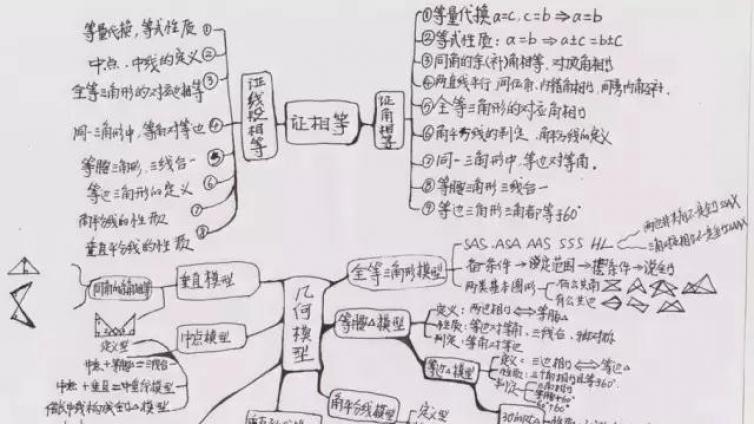 等量代换,等式性质 ①
中点、中线的定义 ②
全等三角形的对应边相等 ③
同一三角形中,等角对等边 ④
等腰三角形,三线合一 ⑤
等边三角形的定义 ⑥
角平分线的性质 ⑦
垂直平分线的性质 ⑧
证线段相等
证相等
证角相等
①等量代换 a=c, c=b ⇒ a=b
②等式性质: a=b ⇒ a±c=b±c
③同角的余(补)角相等、对顶角相等
④两直线平行,同位角、内错角相等,同旁内角互补.
⑤全等三角形的对应角相等
⑥角平分线的判定、角平分线的定义
⑦同一三角形中,等边对等角.
⑧等腰三角形三线合一
⑨等边三角形三角都等于60°
几何模型
全等三角形模型
SAS. ASA AAS SSS HL
备条件→说定范围→摆条件→说全等
两类基本图形
有公共角
有公共边
垂直模型
同角的余角相等
中点模型
定义型
中点+等腰△=三线合一
中点+垂直=中垂线模型
倍长中线构成全等△模型
等腰△模型
定义:两边相等⇔等腰△
性质:等边对等角、三线合一、轴对称
判定:等角对等边
等边△模型
定义:三边相等⇔等边△
性质:三个角相等且等于60°.
判定
三角相等
等腰+60°
角平分线模型
定义型
30°Rt△